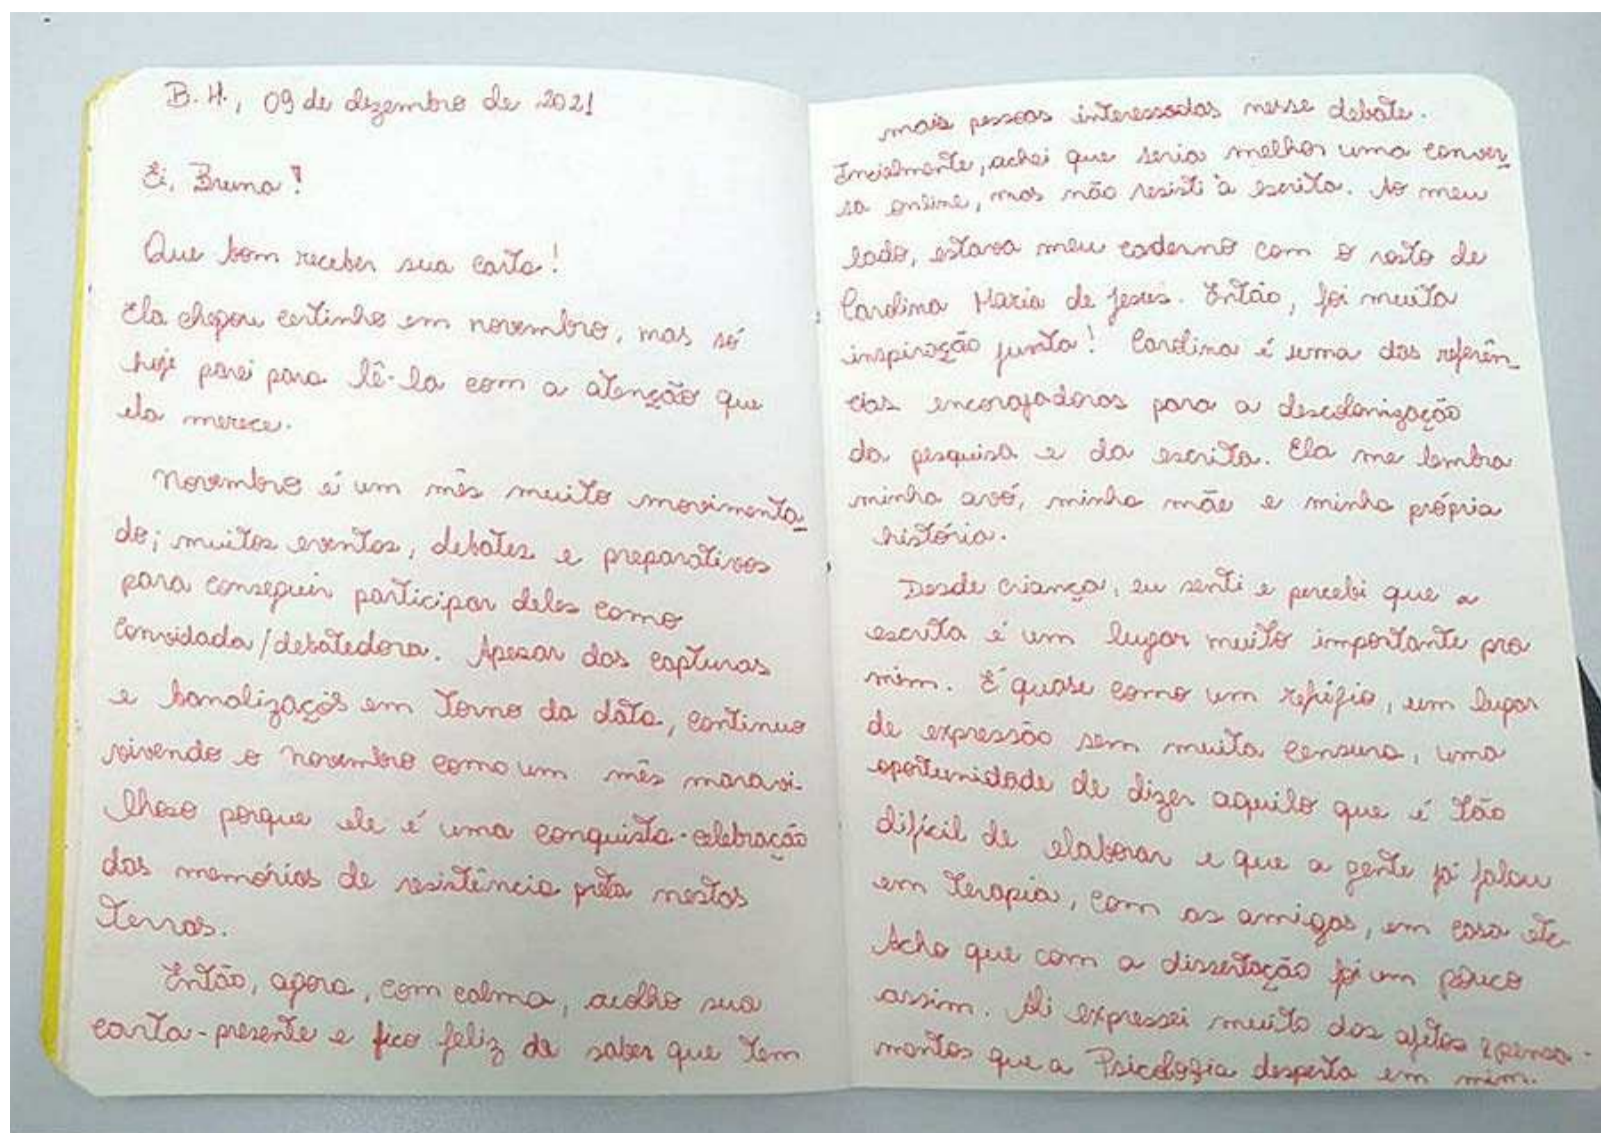 B.H., 09 de dezembro de 2021
Ei, Bruna!
Que bom receber sua carta!
Ela chegou certinho em novembro, mas só
hoje parei para lê-la com a atenção que
ela merece.
Novembro é um mês muito movimenta
do; muitos eventos, debates e preparativos
para conseguir participar deles como
convidada/debatedora. Apesar das capturas
e banalizações em torno da data, continuo
vivendo o novembro como um mês maravi-
lhoso porque ele é uma conquista-celebração
das memórias de resistência preta nestas
terras.
Então, agora, com calma, acolho sua
carta-presente e fico feliz de saber que tem
mais pessoas interessadas nesse debate.
Incialmente, achei que seria melhor uma conver
sa online, mas não resisti à escrita. Ao meu
lado, estava meu caderno com o rosto de
Carolina Maria de Jesus. Então, foi muita
inspiração junta! Carolina é uma das referên
cias encorajadoras para a descolonização
da pesquisa e da escrita. Ela me lembra
minha avó, minha mãe e minha própria
história.
Desde criança, eu senti e percebi que a
escrita é um lugar muito importante pra
mim. É quase como um refúgio, um lugar
de expressão sem muita censura, uma
oportunidade de dizer aquilo que é tão
difícil de elaborar e que a gente já falou
em terapia, com as amigas, em casa etc.
Acho que com a dissertação foi um pouco
assim. Ali expressei muito dos afetos e pensa-
mentos que a Psicologia desperta em mim.